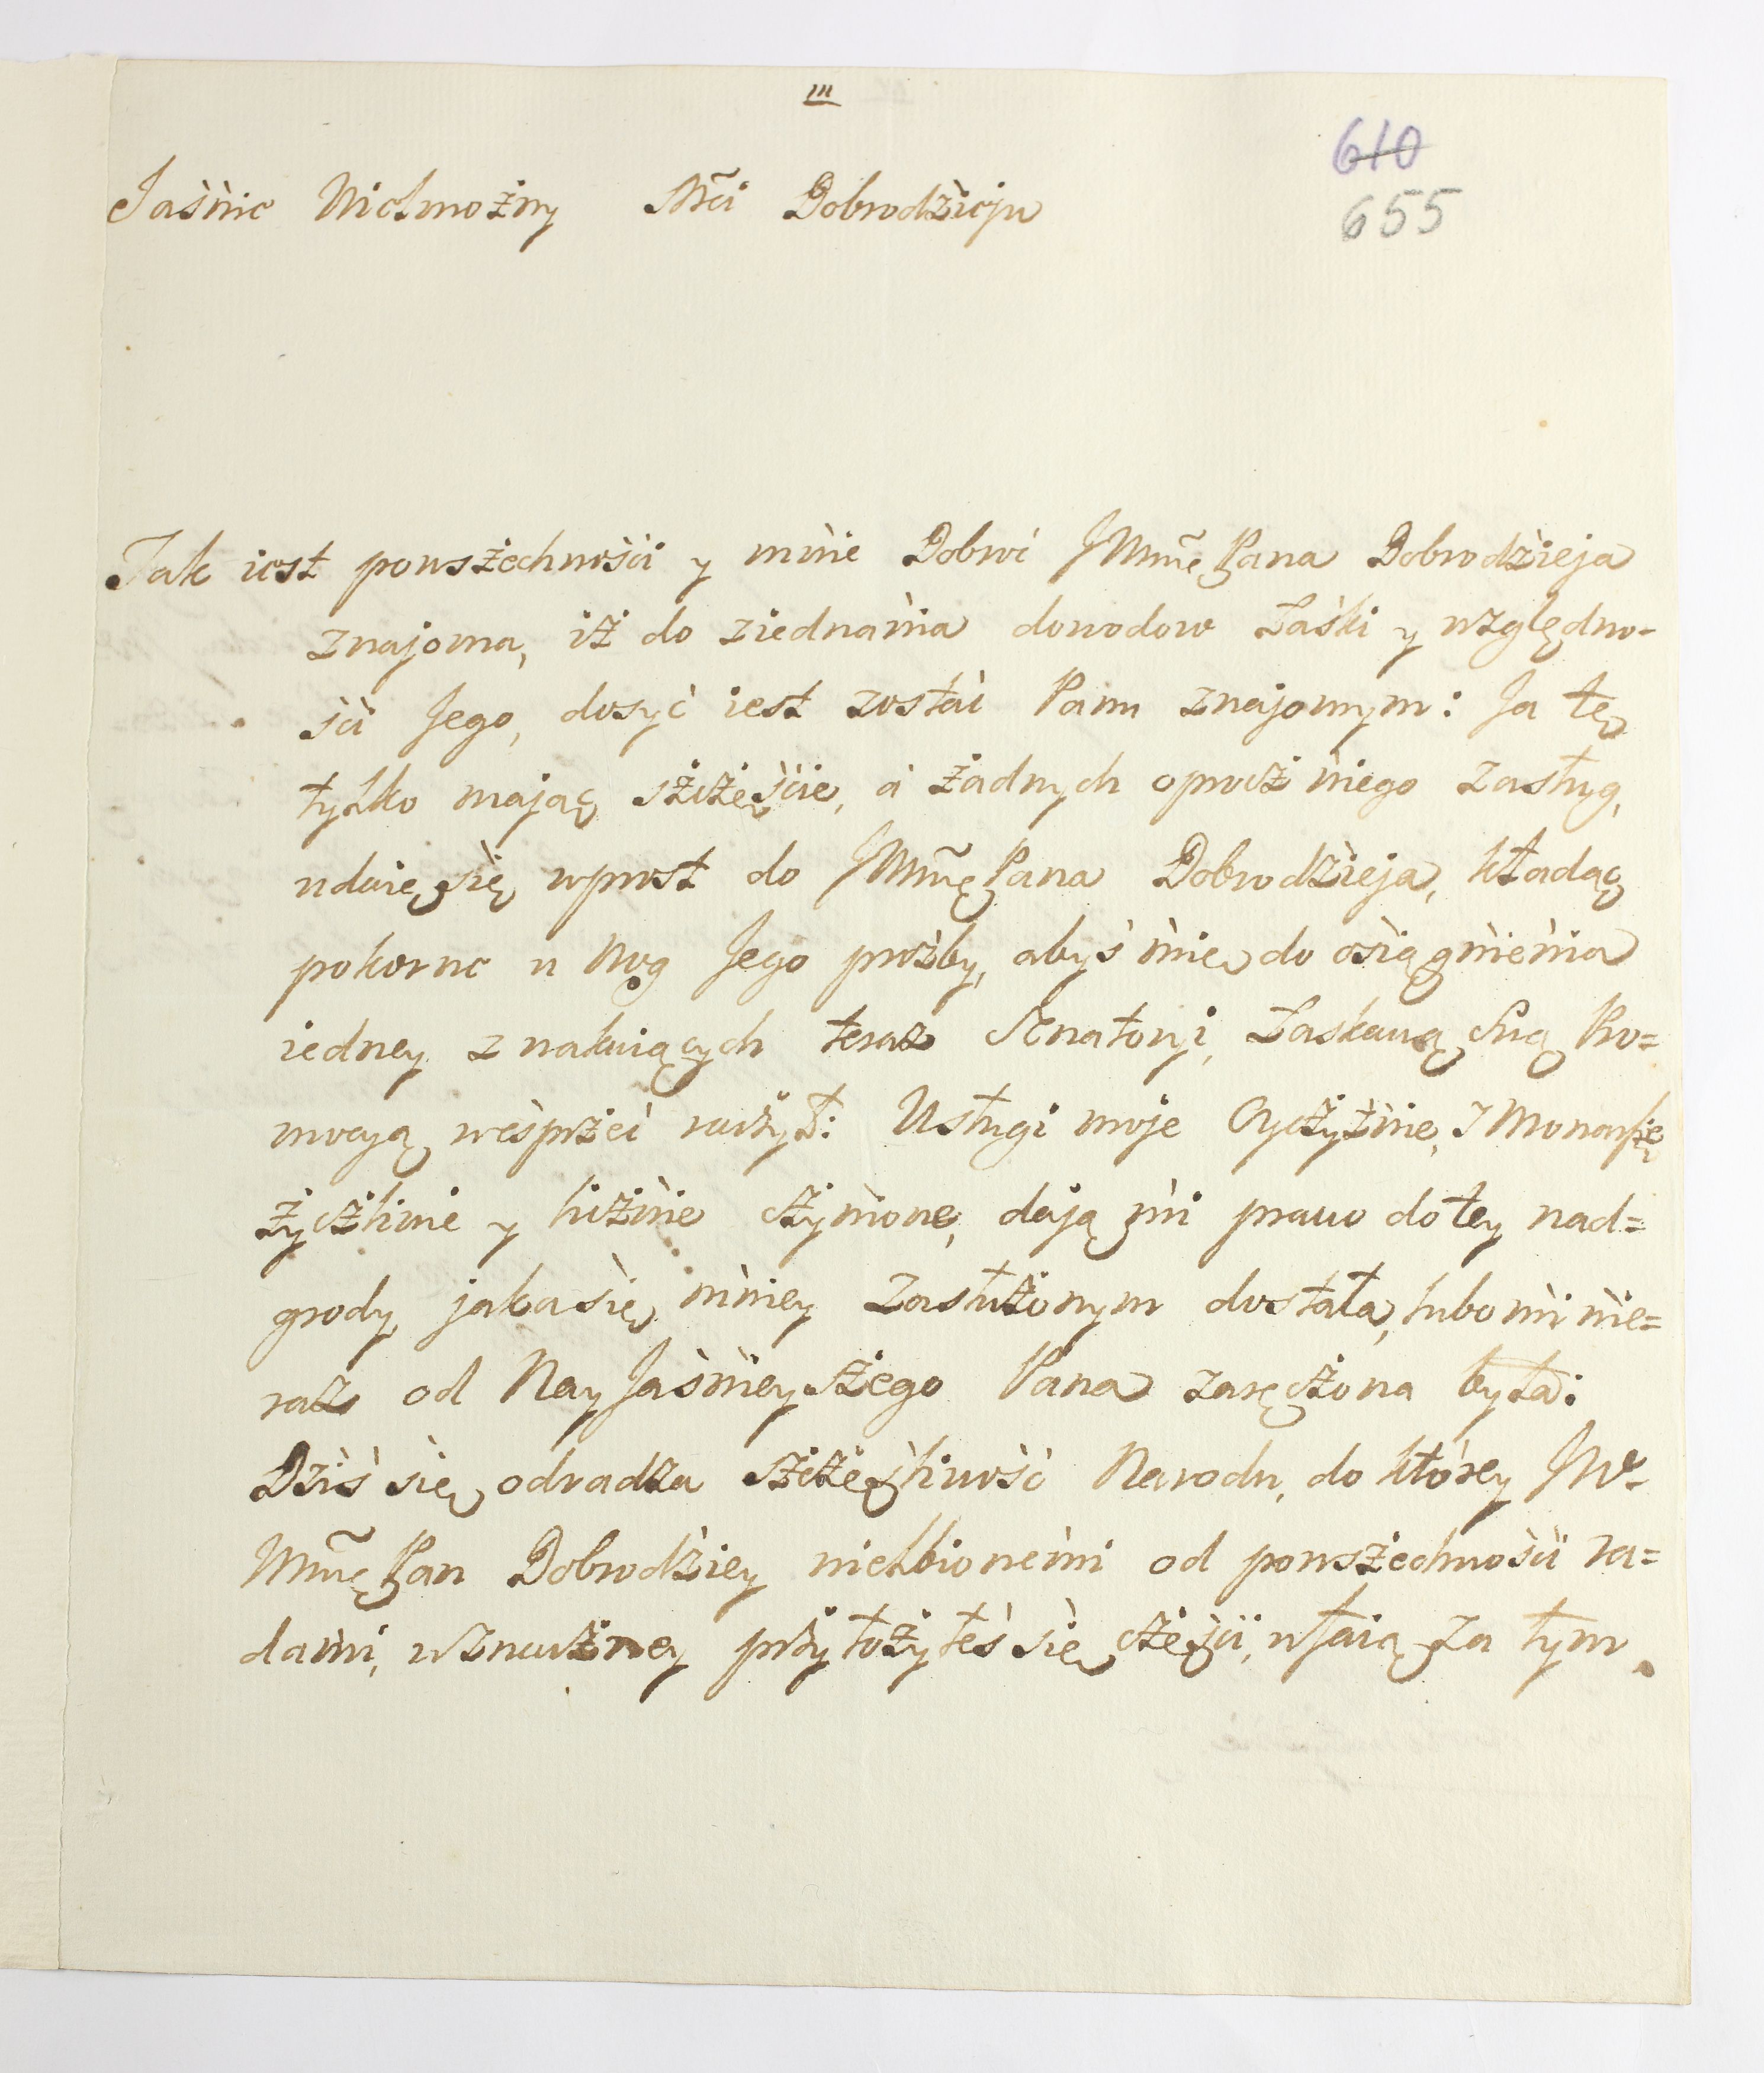 m
610
655
Jaśnie Wielmożny Mći Dobrodżieju
Tak iest powszechnośći y mnie Dobroć JWmć Pana Dobrodżieja
znajoma, iż do ziednania dowodow Łaśki y względno-
śći Jego, dosyć iest zostać Panu znajomym: Ja tę
tylko mając szczęśćie, à żadnych oprocz niego zasług,
udaię się wprost do JWmć Pana Dobrodżieja, kładąc
pokorne u Nog Jego prożby, abyś mię do ośiągnienia
iedney z wakuiących teraz Senatoryi, Łaskawą Swą Pro=
mocyą weśprzeć raczył: Usługi moje Oyczyznie, I Monarsze
życzliwie y licznie czynione, dają mi prawo do tey nad=
grody, jaka się mniey Zasłużonym dostała, lubo mi nie=
raz od NayJaśnieyszego Pana zaręczona była:
Dziś się odradza szczęśliwość Narodu, do ktorey JW-
Wmć Pan Dobrodżiey uielbionemi od powszechnośći ra=
dami, w znaczney przyłożyłeś się częśći, ufaią za tym